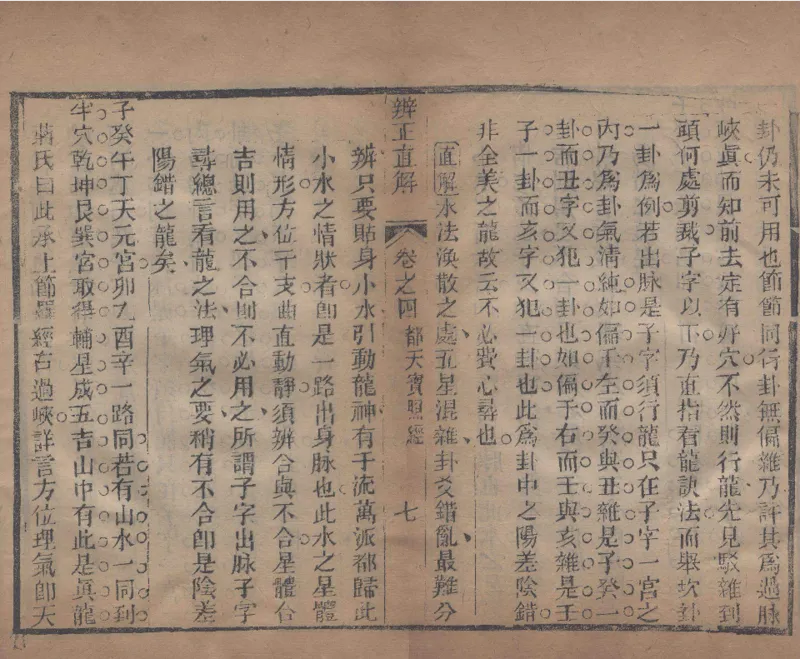 卦仍未可用也節節同行卦無偏雜乃許其爲過脉
峽眞而知前去定有好穴不然則行龍先見駁雜到
頭何處剪裁子字以下乃直指看龍訣法而舉坎卦
一卦爲例若出脉是子字須行龍只在子字一宮之
內乃爲卦氣清純如偏于左而癸與丑雜是子癸一
卦而丑字又犯一卦也如偏于右而壬與亥雜是壬
子一卦而亥字又犯一卦也此爲卦中之陽差陰錯
非全美之龍故云不必費心尋也
直解水法渙散之處五星混雜卦爻錯亂最難分
辨正直解 卷之四 都天寶照經 七
辨只要貼身小水引動龍神有千流萬派都歸此
小水之情狀者卽是一路出身脉也此水之星體
情形方位干支曲直動靜須辨合與不合星體合
吉則用之不合則不必用之所謂子字出脉子字
尋總言看龍之法理氣之要稍有不合卽是陰差
陽錯之龍矣
子癸午丁天元宮卯乙酉辛一路同若有山水一同到
半穴乾坤艮巽宮取得輔星成五吉山中有此是眞龍
蔣氏曰此承上節羅經右過峽詳言方位理氣卽天